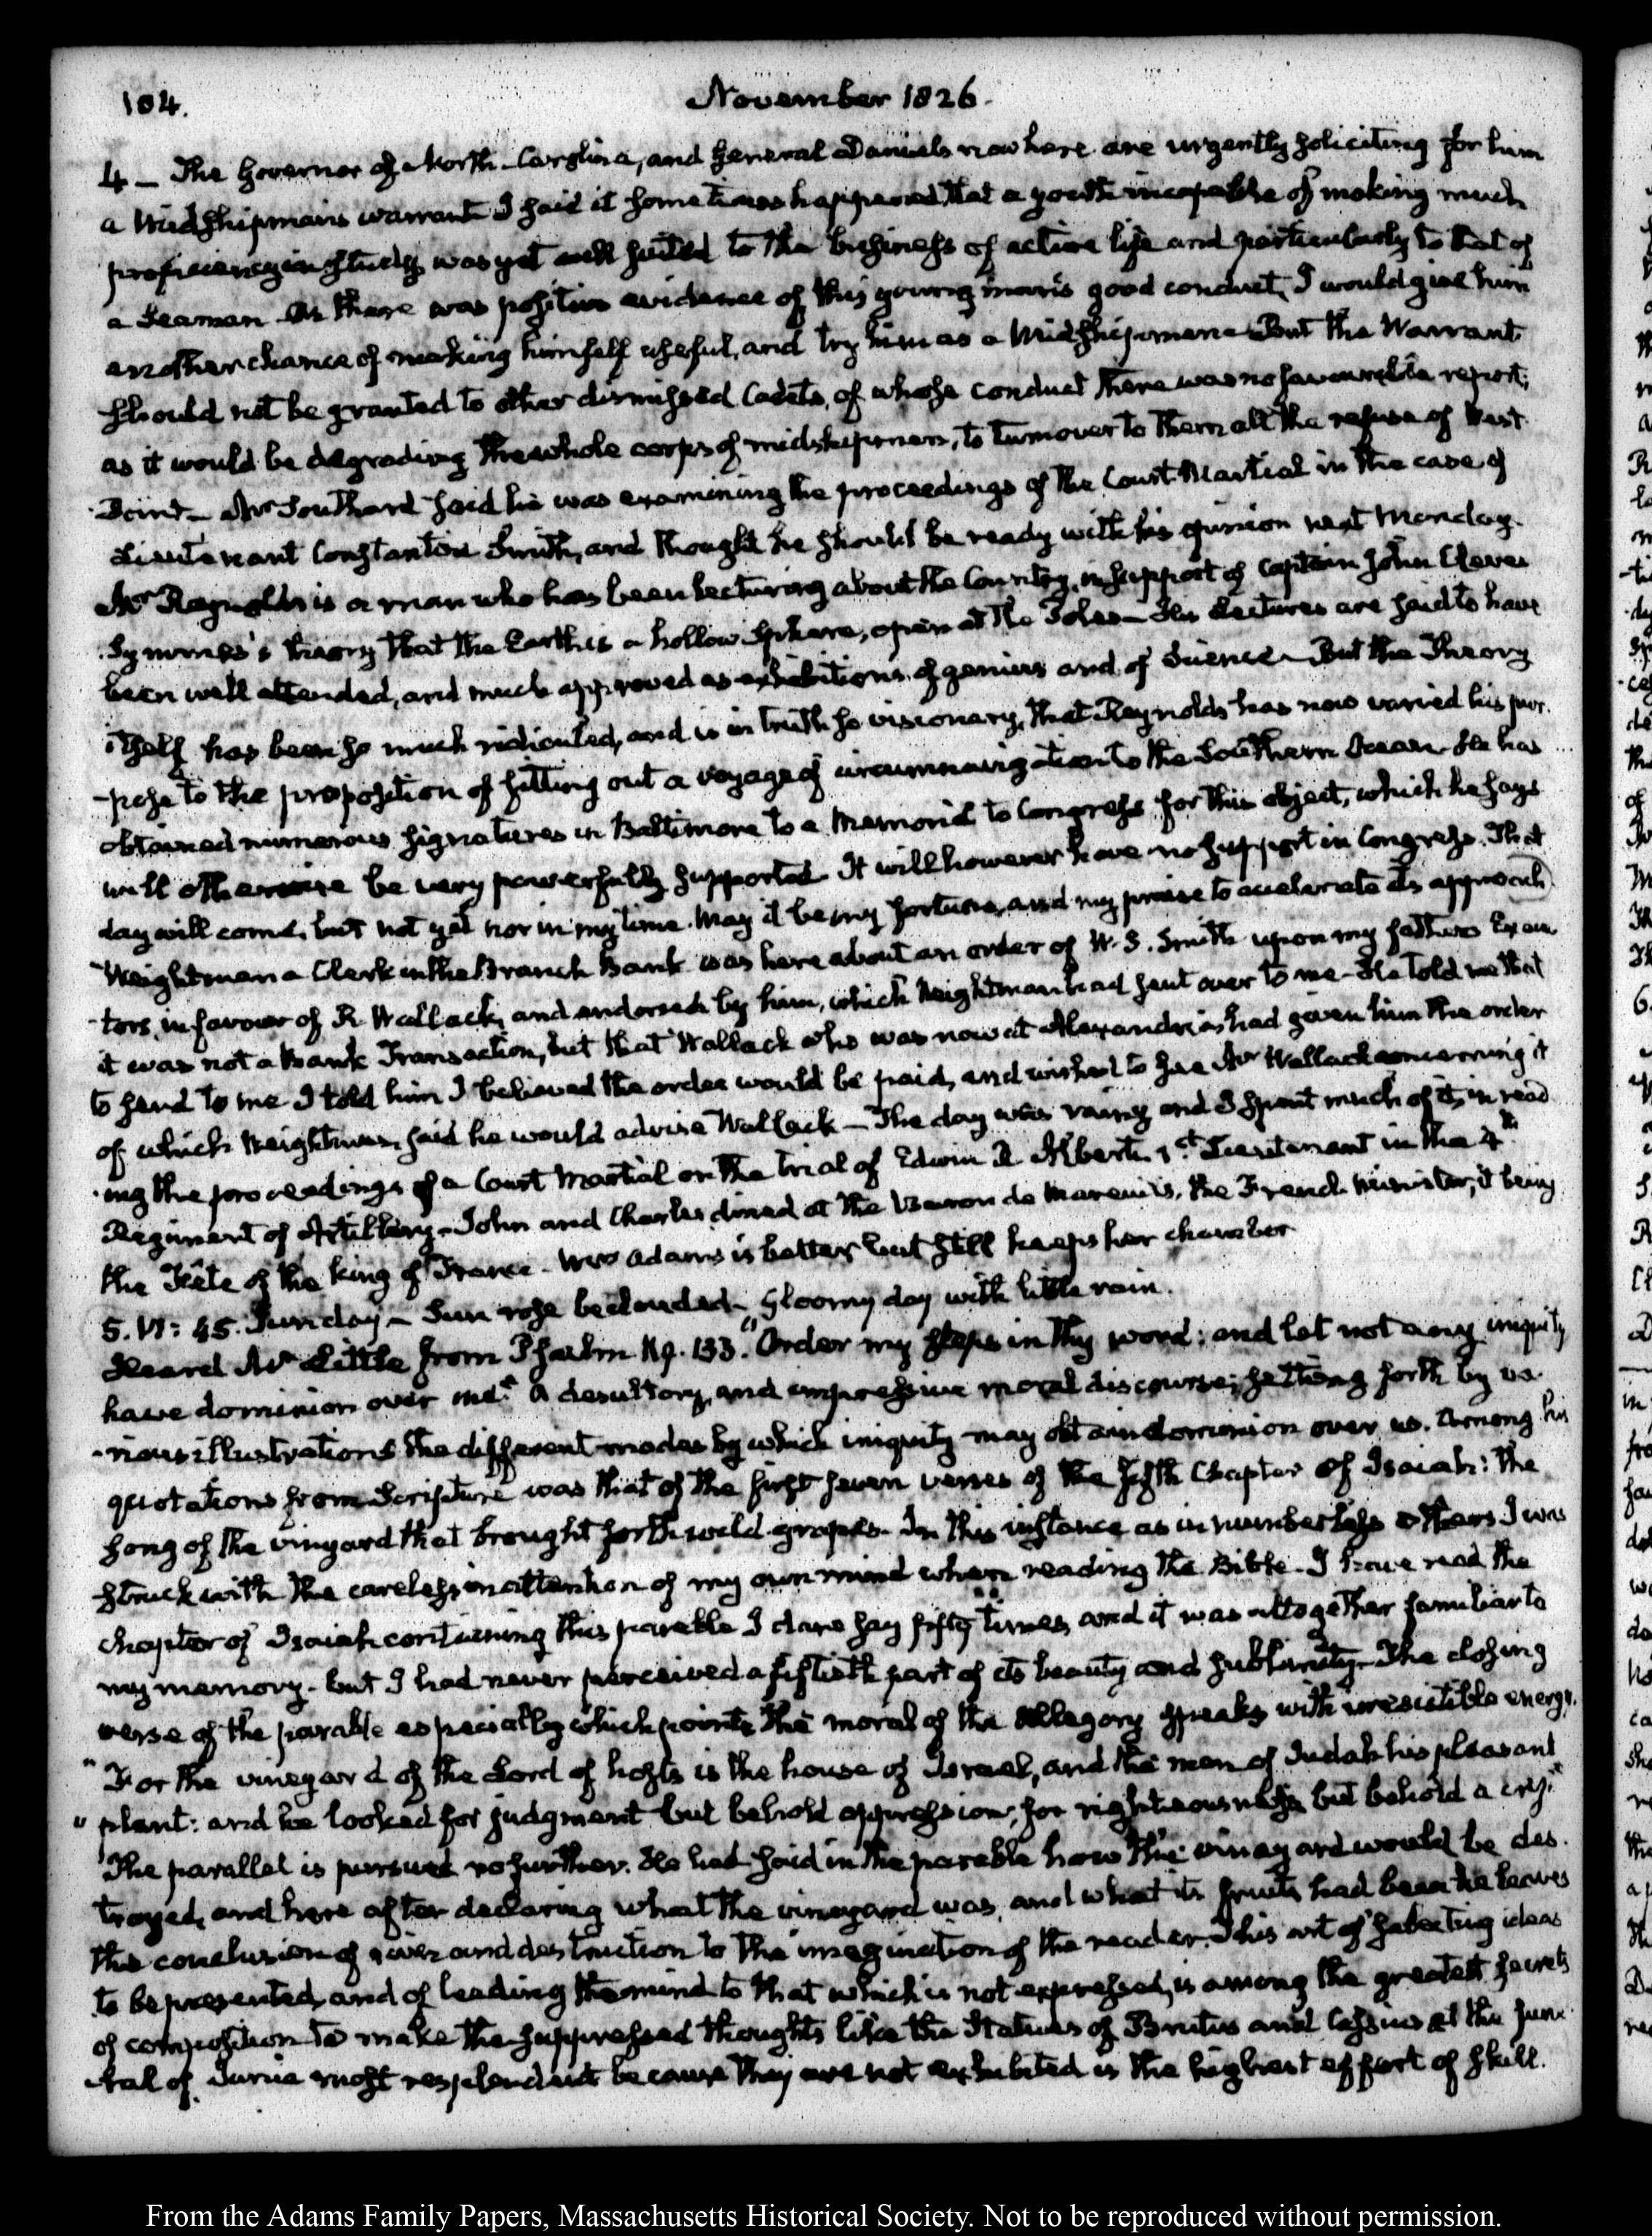 104.
November 1826.
4 — The Governor of North-Carolina, and General Daniels now here are urgently soliciting for him
a Midshipman's warrant I said it sometimes happened that a youth incapable of making much
proficiency in study was yet well suited to the business of active life and particularly to that of
a Seaman. As there was positive evidence of this young man's good conduct, I would give him
another chance of making himself useful, and try him as a Midshipman—But the Warrant
should not be granted to other dismissed Cadets, of whose conduct there was no favourable report;
as it would be degrading the whole corps of midshipmen, to turn over to them all the refuse of West
Point— Mr Southard said he was examining the proceedings of the Court-Martial in the case of
Lieutenant Constantine Smith, and thought he should be ready with his opinion next Monday.
Mr Reynolds is a man who has been lecturing about the Country, in support of Captain John Cleves
Symmes's theory that the Earth is a hollow Sphere, open at the Poles—His Lectures are said to have
been well attended, and much approved as exhibitions of genius and of Science—But the Theory
itself has been so much ridiculed, and is in truth so visionary, that Reynolds has now varied his pur-
-pose to the proposition of fitting out a voyage of circumnavigation to the Southern Ocean—He has
obtained numerous signatures in Baltimore to a Memorial to Congress for this object, which he says
will otherwise be very powerfully supported. It will however have no support in Congress. That
day will come, but not yet nor in my time. May it be my fortune, and my praise to accelerate its approach
Weightman a Clerk in the Branch Bank was here about an order of W. S. Smith upon my father's Execu
-tors, in favour of R. Wallack, and endorsed by him, which Weightman had sent over to me—He told me that
it was not a Bank Transaction, but that Wallack who was now at Alexandria had given him the order
to send to me I told him I believed the order would be paid, and wished to see Mr Wallack concerning it
of which Weightman said he would advise Wallack— The day was rainy and I spent much of it, in read
-ing the proceedings of a Court Martial on the trial of Edwin R. Alberti 1st Lieutenant in the 4th
Regiment of Artillery—John and Charles dined at the Baron de Mareuil's, the French Minister, it being
the Fête of the King of France. Mrs Adams is better but still keeps her chamber
5. VI: 45. Sunday— Sun rose beclouded— Gloomy day with little rain.
Heard Mr Little from Psalm 119. 133. "Order my steps in thy word: and let not any iniquity
have dominion over me." A desultory, and impressive moral discourse; setting forth by va-
-rious illustrations the different modes by which iniquity may obtain dominion over us. Among his
quotations from Scripture was that of the first seven verses of the fifth Chapter of Isaiah: the
song of the vineyard that brought forth wild grapes. In this instance as in numberless others I was
struck with the careless inattention of my own mind when reading the Bible. I have read the
Chapter of Isaiah containing this parable I dare say fifty times, and it was altogether familiar to
my memory. but I had never perceived a fiftieth part of its beauty and sublimity—The closing
verse of the parable especially which points the moral of the allegory speaks with irresistible energy.
"For the vineyard of the Lord of hosts is the house of Israel, and the men of Judah his pleasant
"plant: and he looked for judgment but behold oppression; for righteousness but behold a cry."
The parallel is pursued no further. He had said in the parable how the vineyard would be des-
troyed, and here after declaring what the vineyard was, and what its fruits had been he leaves
the conclusion of and destruction to the imagination of the reader. This art of selecting ideas
to be presented, and of leading the mind to that which is not expressed, is among the greatest secrets
of composition To make the suppressed thoughts like the Statues of Brutus and Cassius at the fune
-ral of Junia most resplendent because they are not exhibited is the highest effort of skill.
From the Adams Family Papers, Massachusetts Historical Society. Not to be reproduced without permission.